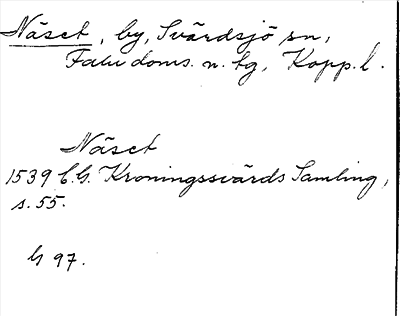 Näset, by, Svärdsjö sn,
Falu doms. n. tg, Kopp. l.
Näset
1539 C.G. Kroningssvärds Samling,
s. 55.
G 97.